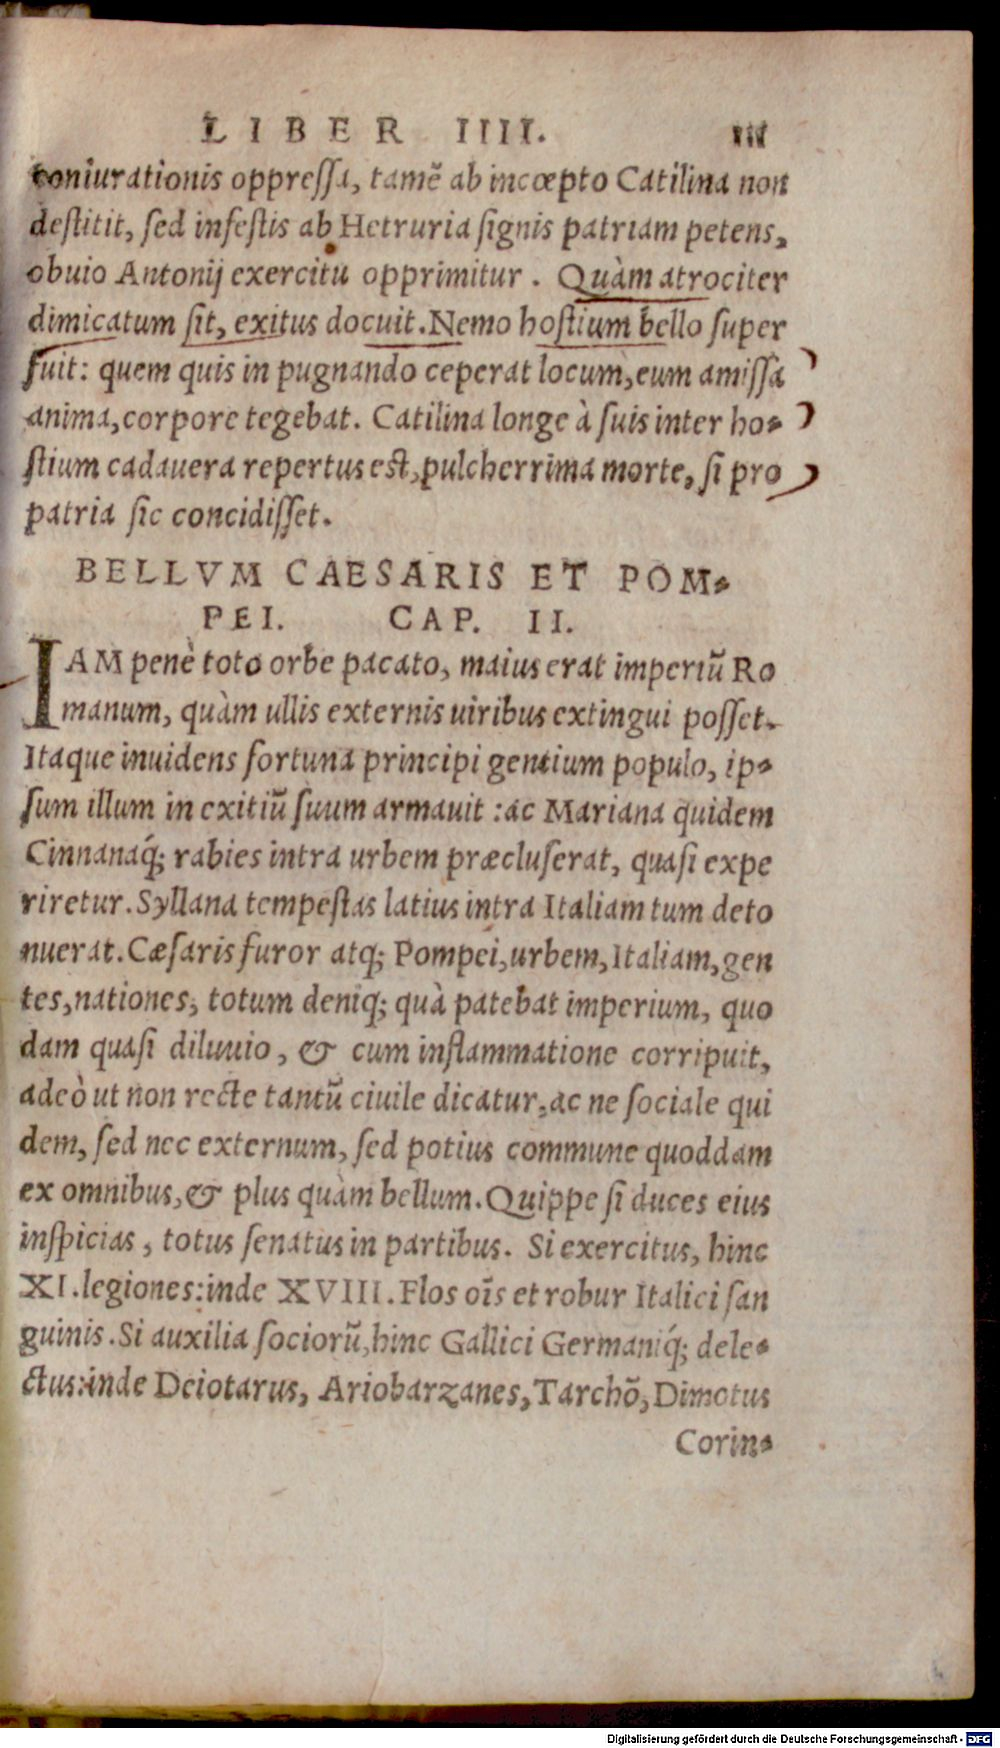 LIBER IIII. iii
coniurationis oppressa, tamē ab incœpto Catilina non
destitit, sed infestis ab Hetruria signis patriam petens,
obuio Antonij exercitu opprimitur. Quàm atrociter
dimicatum sit, exitus docuit. Nemo hostium bello super
fuit: quem quis in pugnando ceperat locum, eum amissa
anima, corpore tegebat. Catilina longe à suis inter ho-
stium cadauera repertus est, pulcherrima morte, si pro
patria sic concidisset.
BELLVM CAESARIS ET POM-
PEI. CAP. II.
IAM penè toto orbe pacato, maius erat imperiū Ro
manum, quàm ullis externis uiribus extingui posset.
Itaque inuidens fortuna principi gentium populo, ip-
sum illum in exitiū suum armauit: ac Mariana quidem
Cinnanaq́; rabies intra urbem præcluserat, quasi expe
riretur. Syllana tempestas latius intra Italiam tum deto
nuerat. Cæsaris furor atq; Pompei, urbem, Italiam, gen
tes, nationes, totum deniq; quà patebat imperium, quo
dam quasi diluuio, & cum inflammatione corripuit,
adeò ut non recte tantū ciuile dicatur, ac ne sociale qui
dem, sed nec externum, sed potius commune quoddam
ex omnibus, & plus quàm bellum. Quippe si duces eius
inspicias, totus senatus in partibus. Si exercitus, hinc
XI. legiones: inde XVIII. Flos oīs et robur Italici san
guinis. Si auxilia sociorū, hinc Gallici Germaniq́; dele-
ctus: inde Deiotarus, Ariobarzanes, Tarchō, Dimotus
Corin-
Digitalisierung gefördert durch die Deutsche Forschungsgemeinschaft - DFG